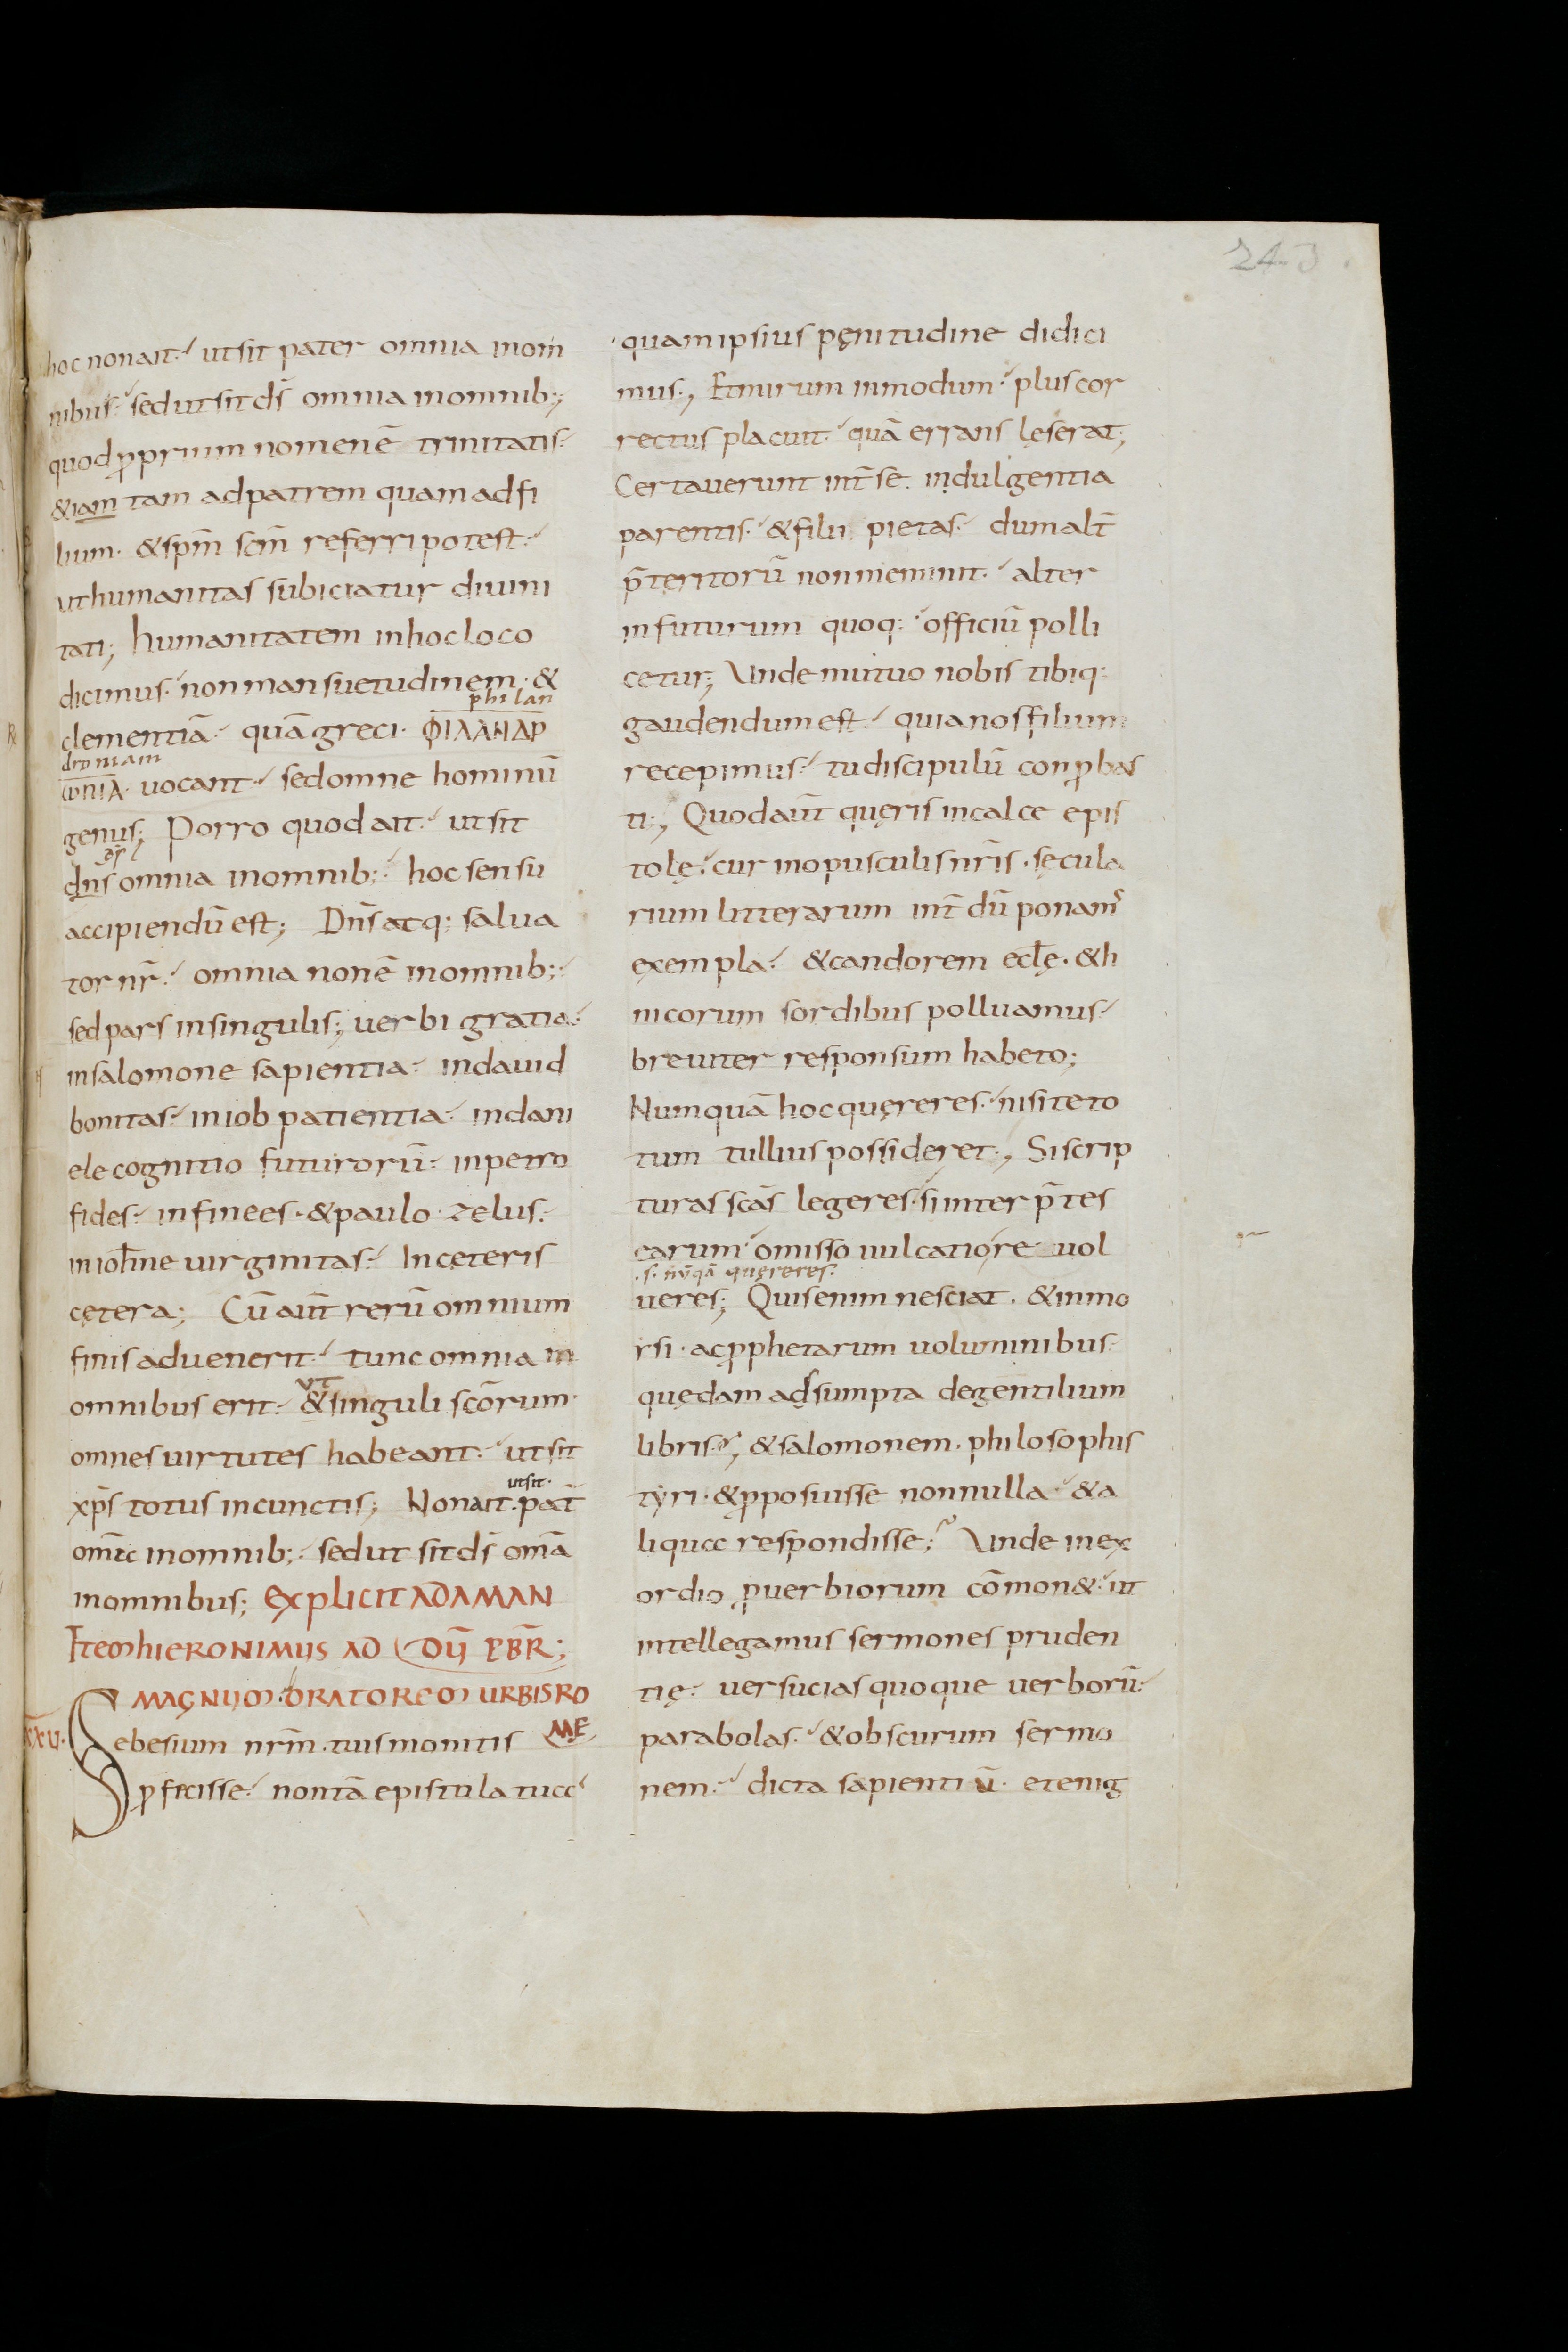 243
hoc nonait. utsit pater omnia inom
nibus. sedutsitds̄ omnia inomnib;
quodꝓprium nomenē trinitatis.
&iam tam adpatrem quamadfi
lium. &spm̄ scm̄ referripotest.
uthumanitas subiciatur diuini
tati; humanitatem inhocloco
dicimus. nonmansuetudinem. &
philan
clementiā. quāgreci. ΦΙΛΑΝΔΡ
droniam
ωΠΙΑ. uocant. sedomne hominū
genus; Porro quodait. utsit
ds̄
dn̄s omnia inomnib; hocsensu
accipiendūest; Dn̄s atq; salua
tor nr̄. omnia nonē inomnib;
sedpars insingulis; uerbi gratia.
insalomone sapientia. indauid
bonitas. iniob patientia. indani
ele cognitio futurorū. inpetro
fides. infinees. &paulo. zelus.
inioh̄ne uirginitas. Incęteris
cętera; Cū aūt rerū omnium
finis aduenerit. tunc omnia in
ut
omnibus erit. &singuli scōrum.
omnesuirtutes habeant. utsit
utsit.
xp̄s totus incunctis; Nonait. pat̄
om̄ia inomnib; sedut sitds̄ om̄a
inomnibus; EXPLICIT ADAMAN
ITEM HIERONIMUS AD DŪ PBR̄;
MAGNUM ORATOREM URBIS RO
ME
xxv. Sebesium nrm̄. tuis monitis
ꝓfecisse. nontā epistula tua
quamipsius pęnitudine didici
mus; Etmirum inmodum. pluscor
rectus placuit. quā errans lęserat;
Certauerunt int̄ se. indulgentia
parentis. &filii pietas. dumalt̄
p̄teritorū nonmeminit. alter
infuturum quoq: officiū polli
cetur; Unde mutuo nobis tibiq:
gaudendumest. quianosfilium
recepimus. tudiscipulū conꝓbas
ti; Quodaūt quęris incalce epis
tolę. cur inopusculisnr̄is. sęcula
rium litterarum int̄dū ponam᾿
exempla. &candorem ecl̄ę. &h
nicorum sordibus polluamus.
breuiter responsum habeto;
Numquā hocquęreres. nisiteto
tum tullius possideret; Siscrip
turas scās legeres. siinterp̄tes
earum. omisso uulcatiore uol
.s. nūqā quęreres.
ueres; Quisenim nesciat. &inmo
ysi. acꝓphetarum uoluminibus.
quędam adsumpta degentilium
libris; &salomonem. philosophis
tyri. &ꝓposuisse nonnulla. &a
liqua respondisse; Unde inex
ordio ꝓuerbiorum cōmon&. ut
intellegamus sermones pruden
tię. uersucias quoque uerborū.
parabolas. &obscurum sermo
nem. dicta sapientiū. etenig